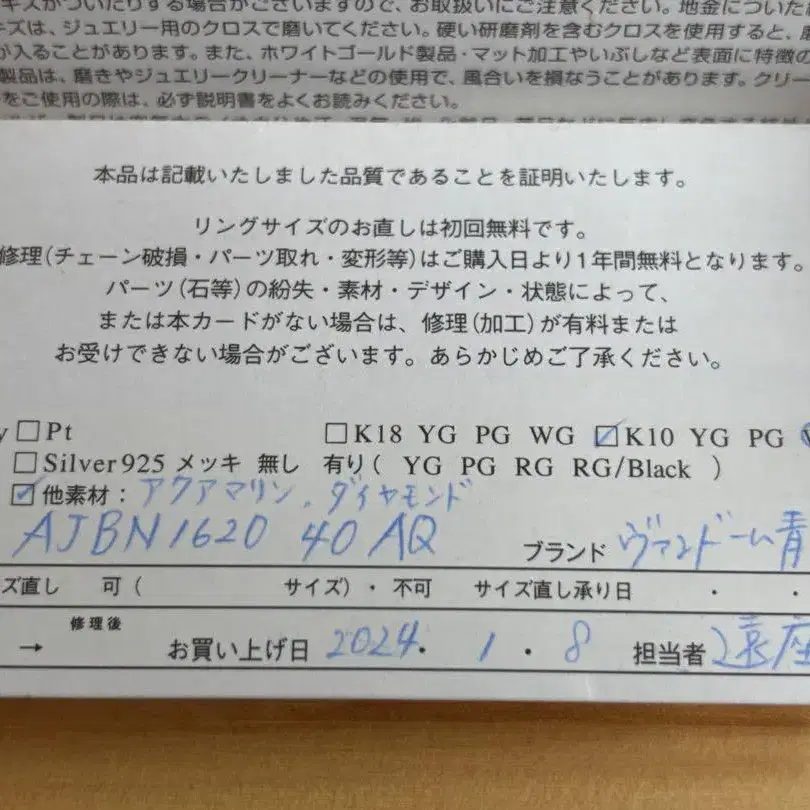 キズがついたりする場合がございますので、お取扱いにご注意ください。地金についた
キズは、ジュエリー用のクロスで磨いてください。硬い研磨剤を含むクロスを使用すると、
が入ることがあります。また、ホワイトゴールド製品・マット加工やいぶしなど表面に特徴の
製品は、磨きやジュエリークリーナーなどの使用で、風合いを損なうことがあります。クリー
をご使用の際は、必ず説明書をよくお読みください。
本品は記載いたしました品質であることを証明いたします。
リングサイズのお直しは初回無料です。
修理(チェーン破損・パーツ取れ・変形等)はご購入日より1年間無料となります。
パーツ(石等)の紛失・素材・デザイン・状態によって、
または本カードがない場合は、修理(加工)が有料または
お受けできない場合がございます。あらかじめご了承ください。
y □Pt □K18 YG PG WG ☑K10 YG PG
□Silver925 メッキ 無し 有り( YG PG RG RG/Black )
☑他素材：アクアマリン、ダイヤモンド
AJBN1620 40 AQ ブランド ヴァンドーム青
ズ直し 可( サイズ)・不可 サイズ直し承り日 ・ ・
修理後
→ お買い上げ日 2024・1・8 担当者